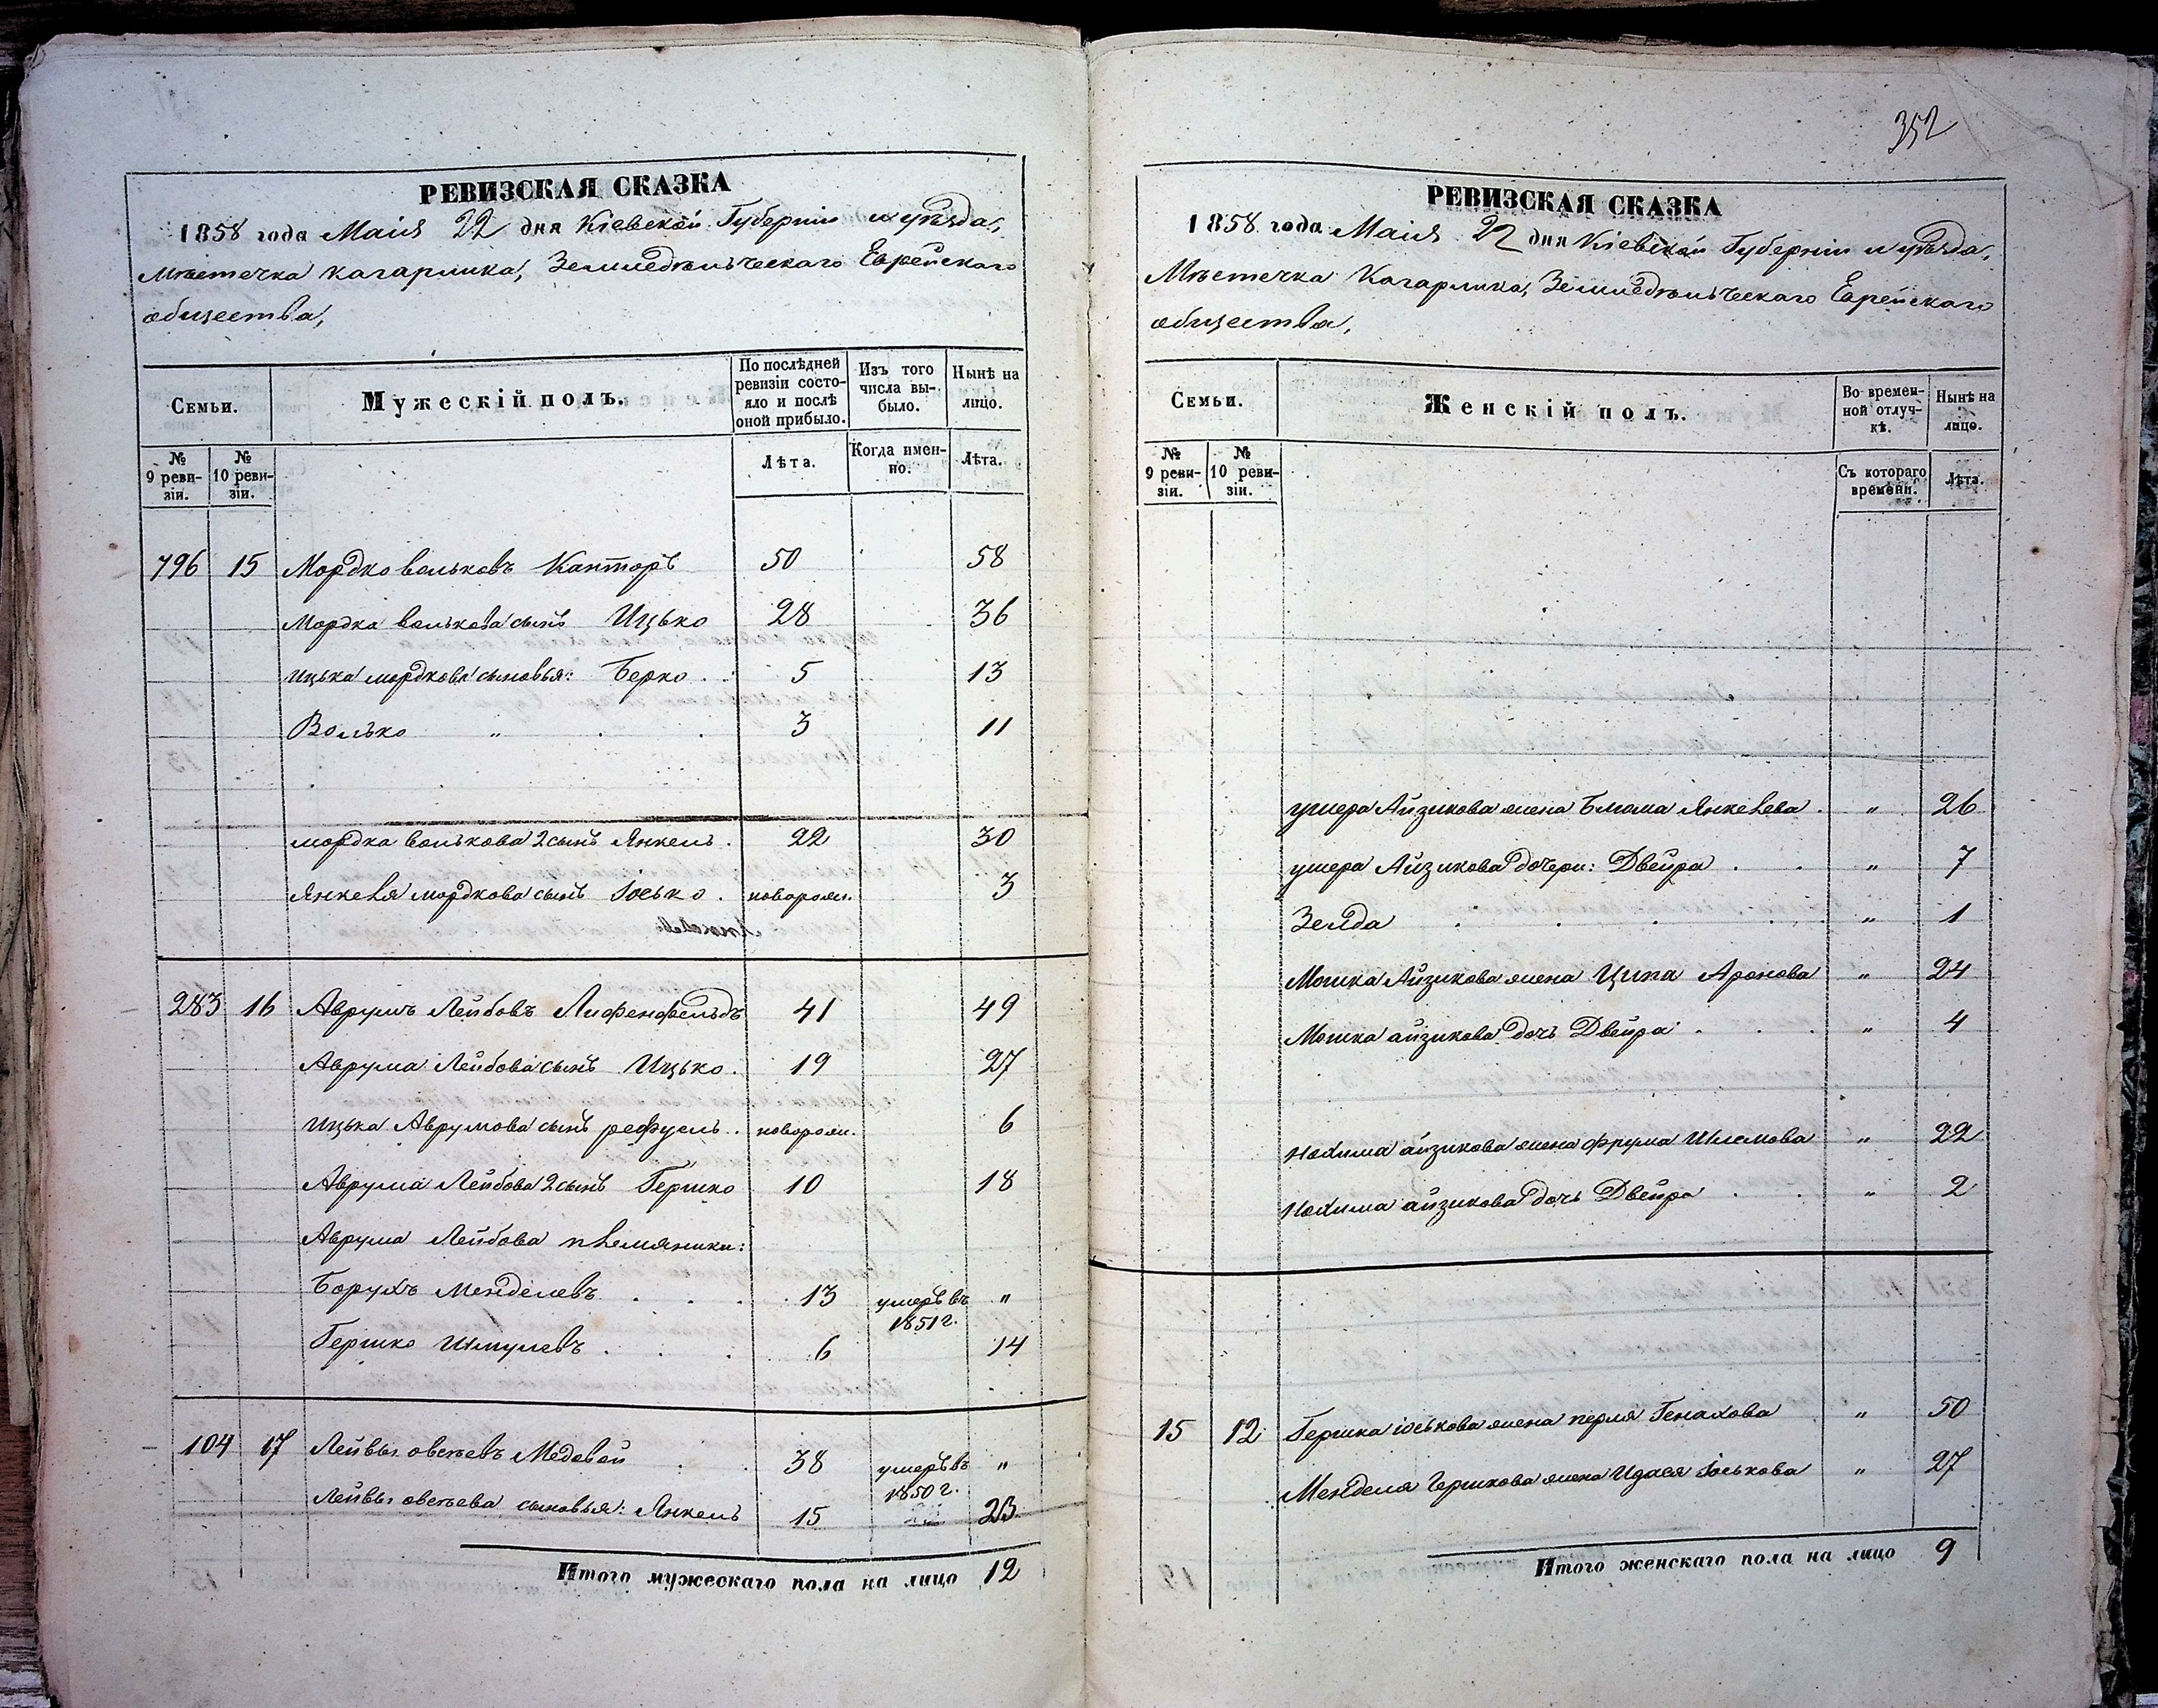 РЕВИЗСКАЯ СКАЗКА
1858 года Маія 22 дня Кіевской Губерніи и уѣзда,
Мѣстечка Кагарлика, Земледѣльческаго Еврейскаго
общества,
Семьи.
Мужескій полъ.
По послѣдней ревизіи состояло и послѣ оной прибыло.
Изъ того числа выбыло.
Нынѣ на лицо.
№ 9 ревизіи.
№ 10 ревизіи.
Лѣта.
Когда именно.
Лѣта.
796 15 Мордко Вольковъ Канторъ 50 58
Мордка Волькова сынъ Ицько 28 36
Ицька Мордкова сыновья: Берко . 5 13
Волько " . . 3 11
Мордка Волькова 2 сынъ Янкель . 22 30
Янкеля Мордкова сынъ Іосько . новорож. 3
283 16 Аврумъ Лейбовъ Лифенфельдъ 41 49
Аврума Лейбова сынъ Ицько . 19 27
Ицька Аврумова сынъ Рефуель . новорож. 6
Аврума Лейбова 2 сынъ Гершко 10 18
Аврума Лейбова племяники:
Борухъ Менделевъ . . . 13 умеръ въ 1851 г. "
Гершко Шмулевъ . . . 6 14
104 17 Лейвы Овсѣевъ Медовой . . 38 умеръ въ 1850 г. "
Лейвы Овсѣева сыновья: Янкель 15 23
Итого мужескаго пола на лицо 12
352
РЕВИЗСКАЯ СКАЗКА
1858 года Маія 22 дня Кіевской Губерніи и уѣзда,
Мѣстечка Кагарлика, Земледѣльческаго Еврейскаго
общества,
Семьи.
Женскій полъ.
Во временной отлучкѣ.
Нынѣ на лицо.
№ 9 ревизіи.
№ 10 ревизіи.
Съ котораго времени.
Лѣта.
Ушера Айзикова жена Блюма Янкелева . " 26
Ушера Айзикова дочери: Двейра . . " 7
Зелда . . . . . " 1
Мошка Айзикова жена Ципа Аронова " 24
Мошка Айзикова дочь Двейра . . . " 4
Нохима Айзикова жена Фрума Шлемова " 22
Нохима Айзикова дочь Двейра . . " 2
15 12 Гершка Іоськова жена Перля Генахова " 50
Менделя Гершкова жена Идася Іоськова " 27
Итого женскаго пола на лицо 9